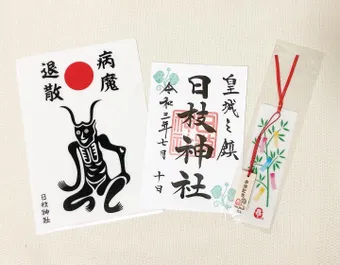 病魔
退散
日枝神社
皇城之鎮
日枝神社
令和三年七月十日